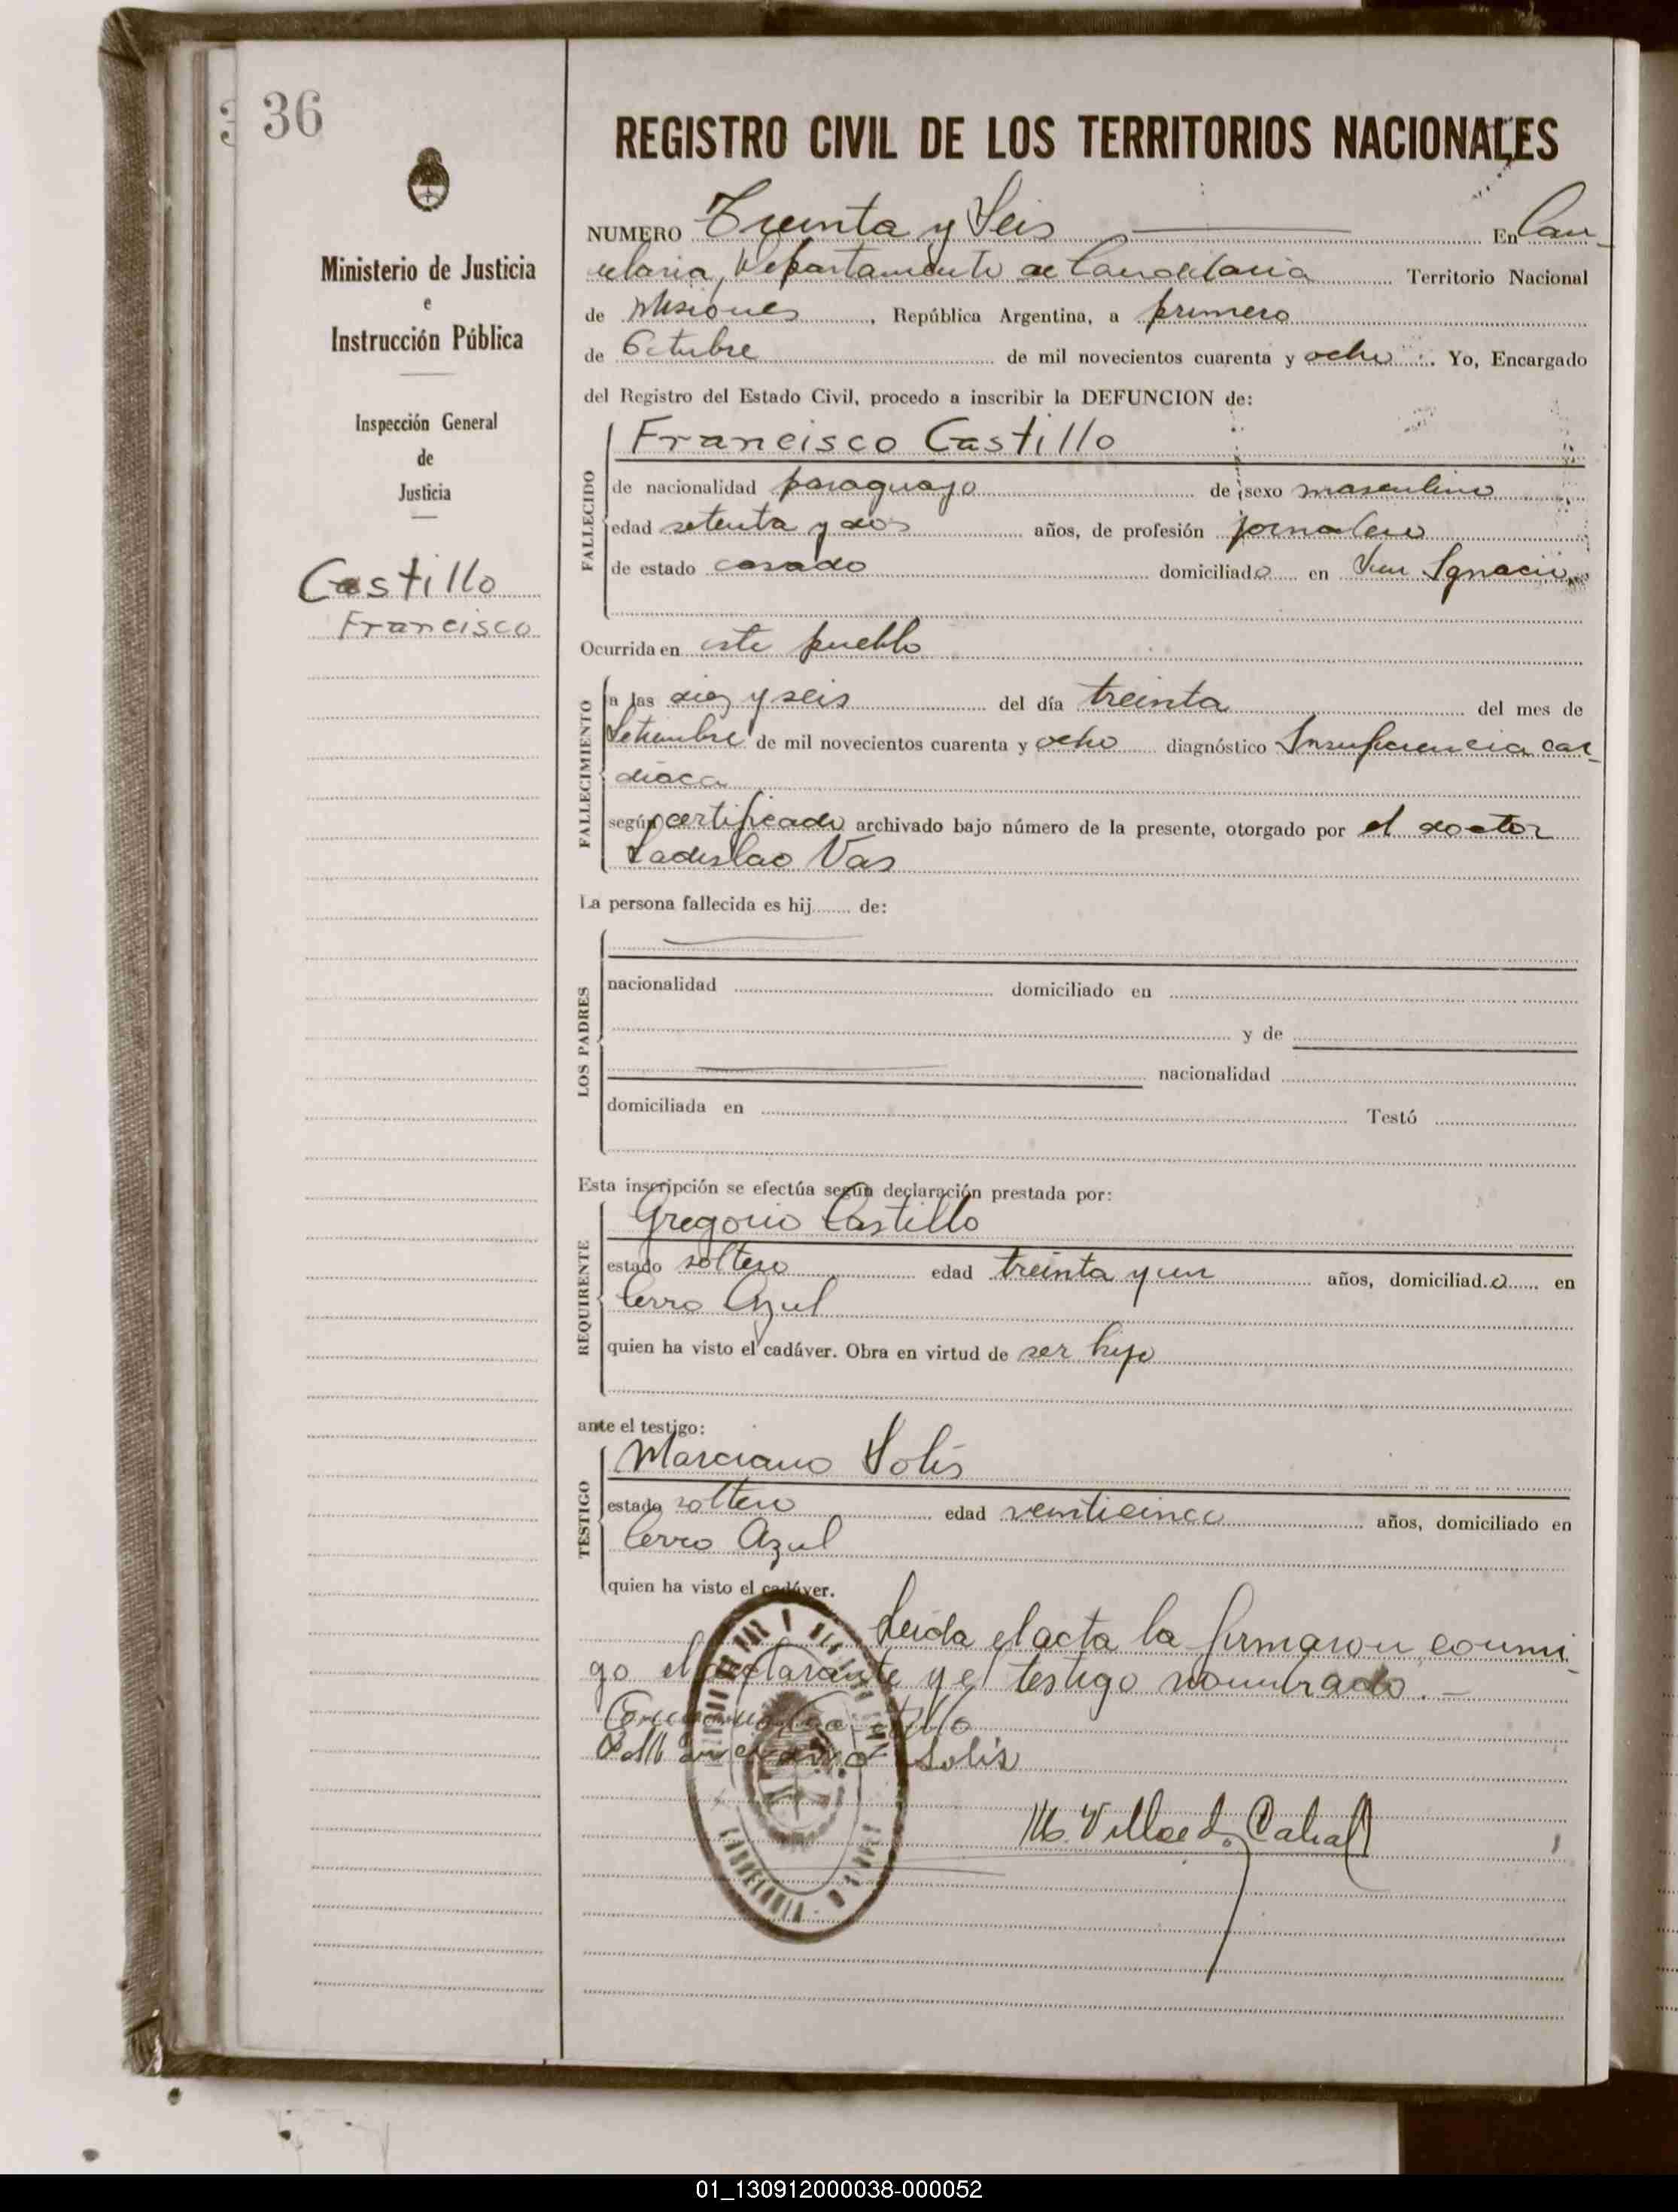 36
Ministerio de Justicia
e
Instrucción Pública
Inspección General
de
Justicia
Castillo
Francisco
REGISTRO CIVIL DE LOS TERRITORIOS NACIONALES
NUMERO Treinta y Seis En Can-
delaria, Departamento de Candelaria Territorio Nacional
de Misiones, República Argentina, a primero
de Octubre de mil novecientos cuarenta y ocho. Yo, Encargado
del Registro del Estado Civil, procedo a inscribir la DEFUNCION de:
FALLECIDO
Francisco Castillo
de nacionalidad paraguayo de sexo masculino
edad setenta y dos años, de profesión jornalero
de estado casado domiciliado en San Ignacio
Ocurrida en este pueblo
FALLECIMIENTO
a las diez y seis del día treinta del mes de
Setiembre de mil novecientos cuarenta y ocho diagnóstico Insuficiencia car-
diaca
según certificado archivado bajo número de la presente, otorgado por el doctor
Ladislao Vas
La persona fallecida es hij........ de:
LOS PADRES
nacionalidad domiciliado en
y de
nacionalidad
domiciliada en Testó
Esta inscripción se efectúa según declaración prestada por:
REQUIRENTE
Gregorio Castillo
estado soltero edad treinta y un años, domiciliado en
Cerro Azul
quien ha visto el cadáver. Obra en virtud de ser hijo
ante el testigo:
TESTIGO
Marciano Solis
estado soltero edad veinticinco años, domiciliado en
Cerro Azul
quien ha visto el cadáver.
Leida el acta la firmaron conmi-
go el declarante y el testigo nombrado.-
Solís
M. Villa de Cabral
01_130912000038-000052